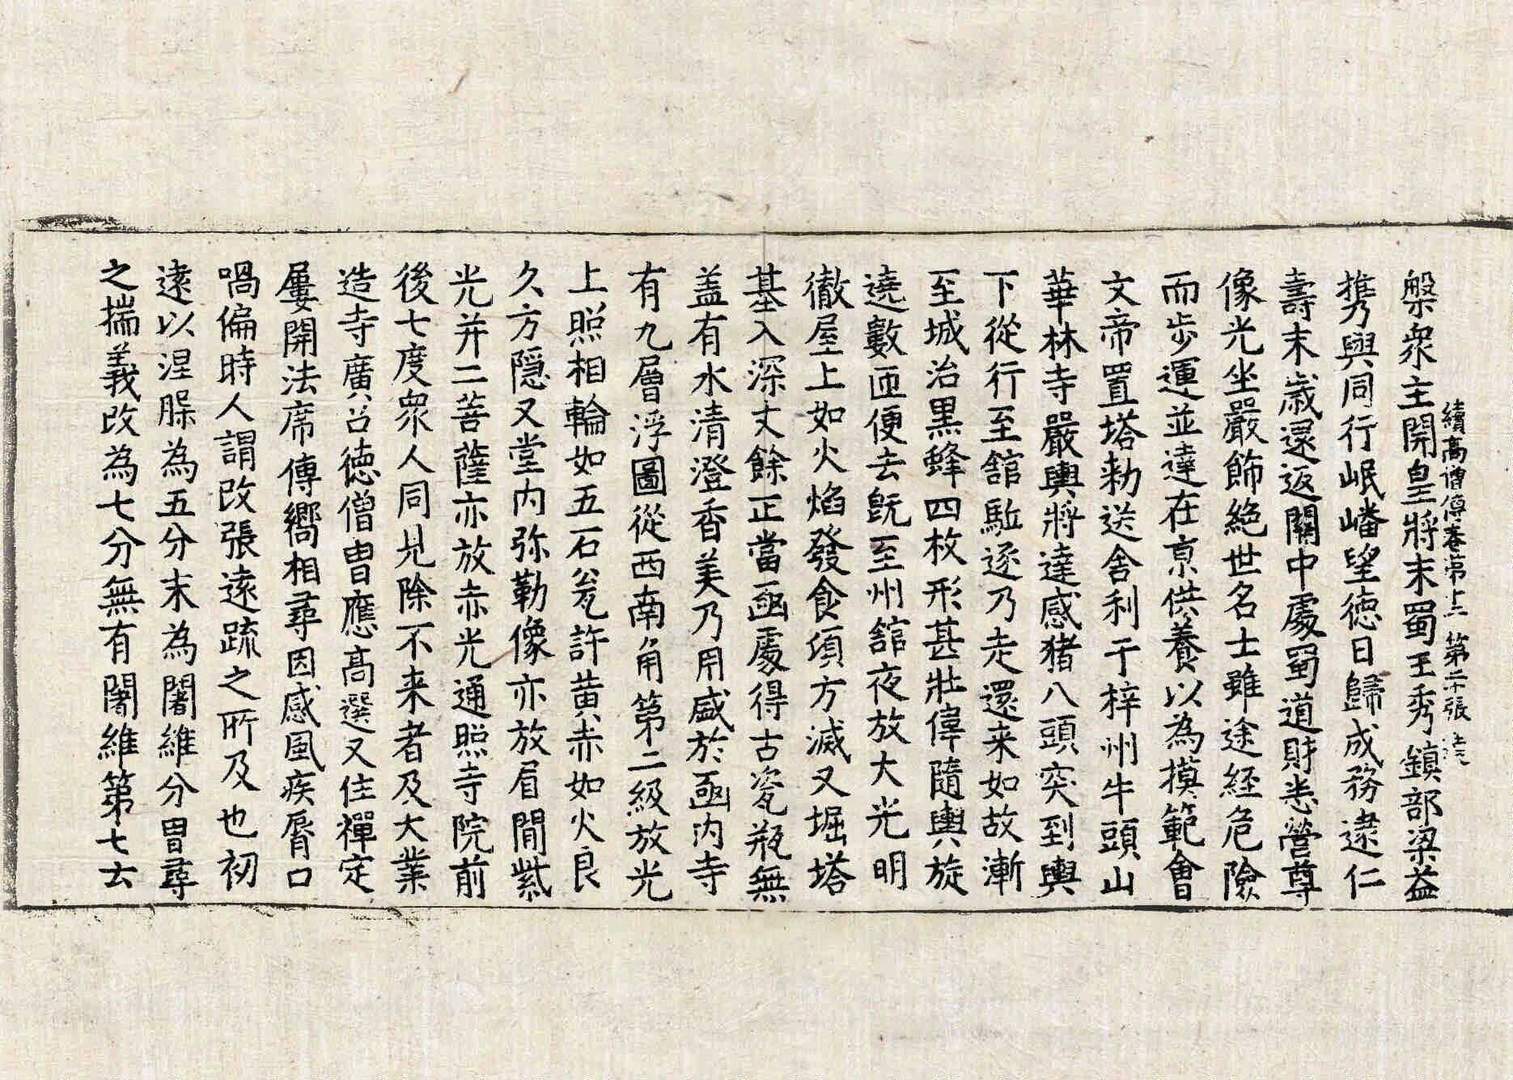 續高僧傳卷第十二 第二十張
槃衆主開皇將末蜀王秀鎮部梁益
攜與同行岷嶓望德日歸成務逮仁
壽末歲還返關中處蜀道財悉營尊
像光坐嚴飾絶世名士雖途經危險
而步運並達在京供養以為摸範會
文帝置塔勑送舍利于梓州牛頭山
華林寺嚴輿將達感猪八頭突到輿
下從行至舘駈逐乃走還来如故漸
至城治黒蜂四枚形甚壯偉隨輿旋
遶數匝便去既至州舘夜放大光明
徹屋上如火焰發食頃方滅又堀塔
基入深丈餘正當凾處得古瓷瓶無
盖有水清澄香美乃用盛於凾内寺
有九層浮圖從西南角第二級放光
上照相輪如五石瓮許黄赤如火良
久方隱又堂内弥勒像亦放眉間紫
光并二菩薩亦放赤光通照寺院前
後七度衆人同見除不来者及大業
造寺廣召德僧曺應高選又住禪定
屢開法席傳嚮相尋因感風疾脣口
喎偏時人謂改張遠疏之所及也初
遠以涅槃為五分末為闍維分曺尋
之揣義改為七分無有闍維第七云